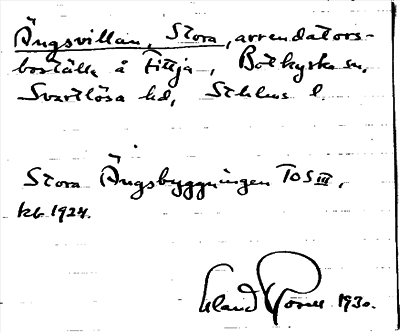 Ängsvillan, Stora, arrendators-
boställe å Fittja, Botkyrka sn,
Svartlösa hd, Sthlms l.
Stora Ängsbyggningen TOS III,
kb 1924.
Erland Rosell 1930.